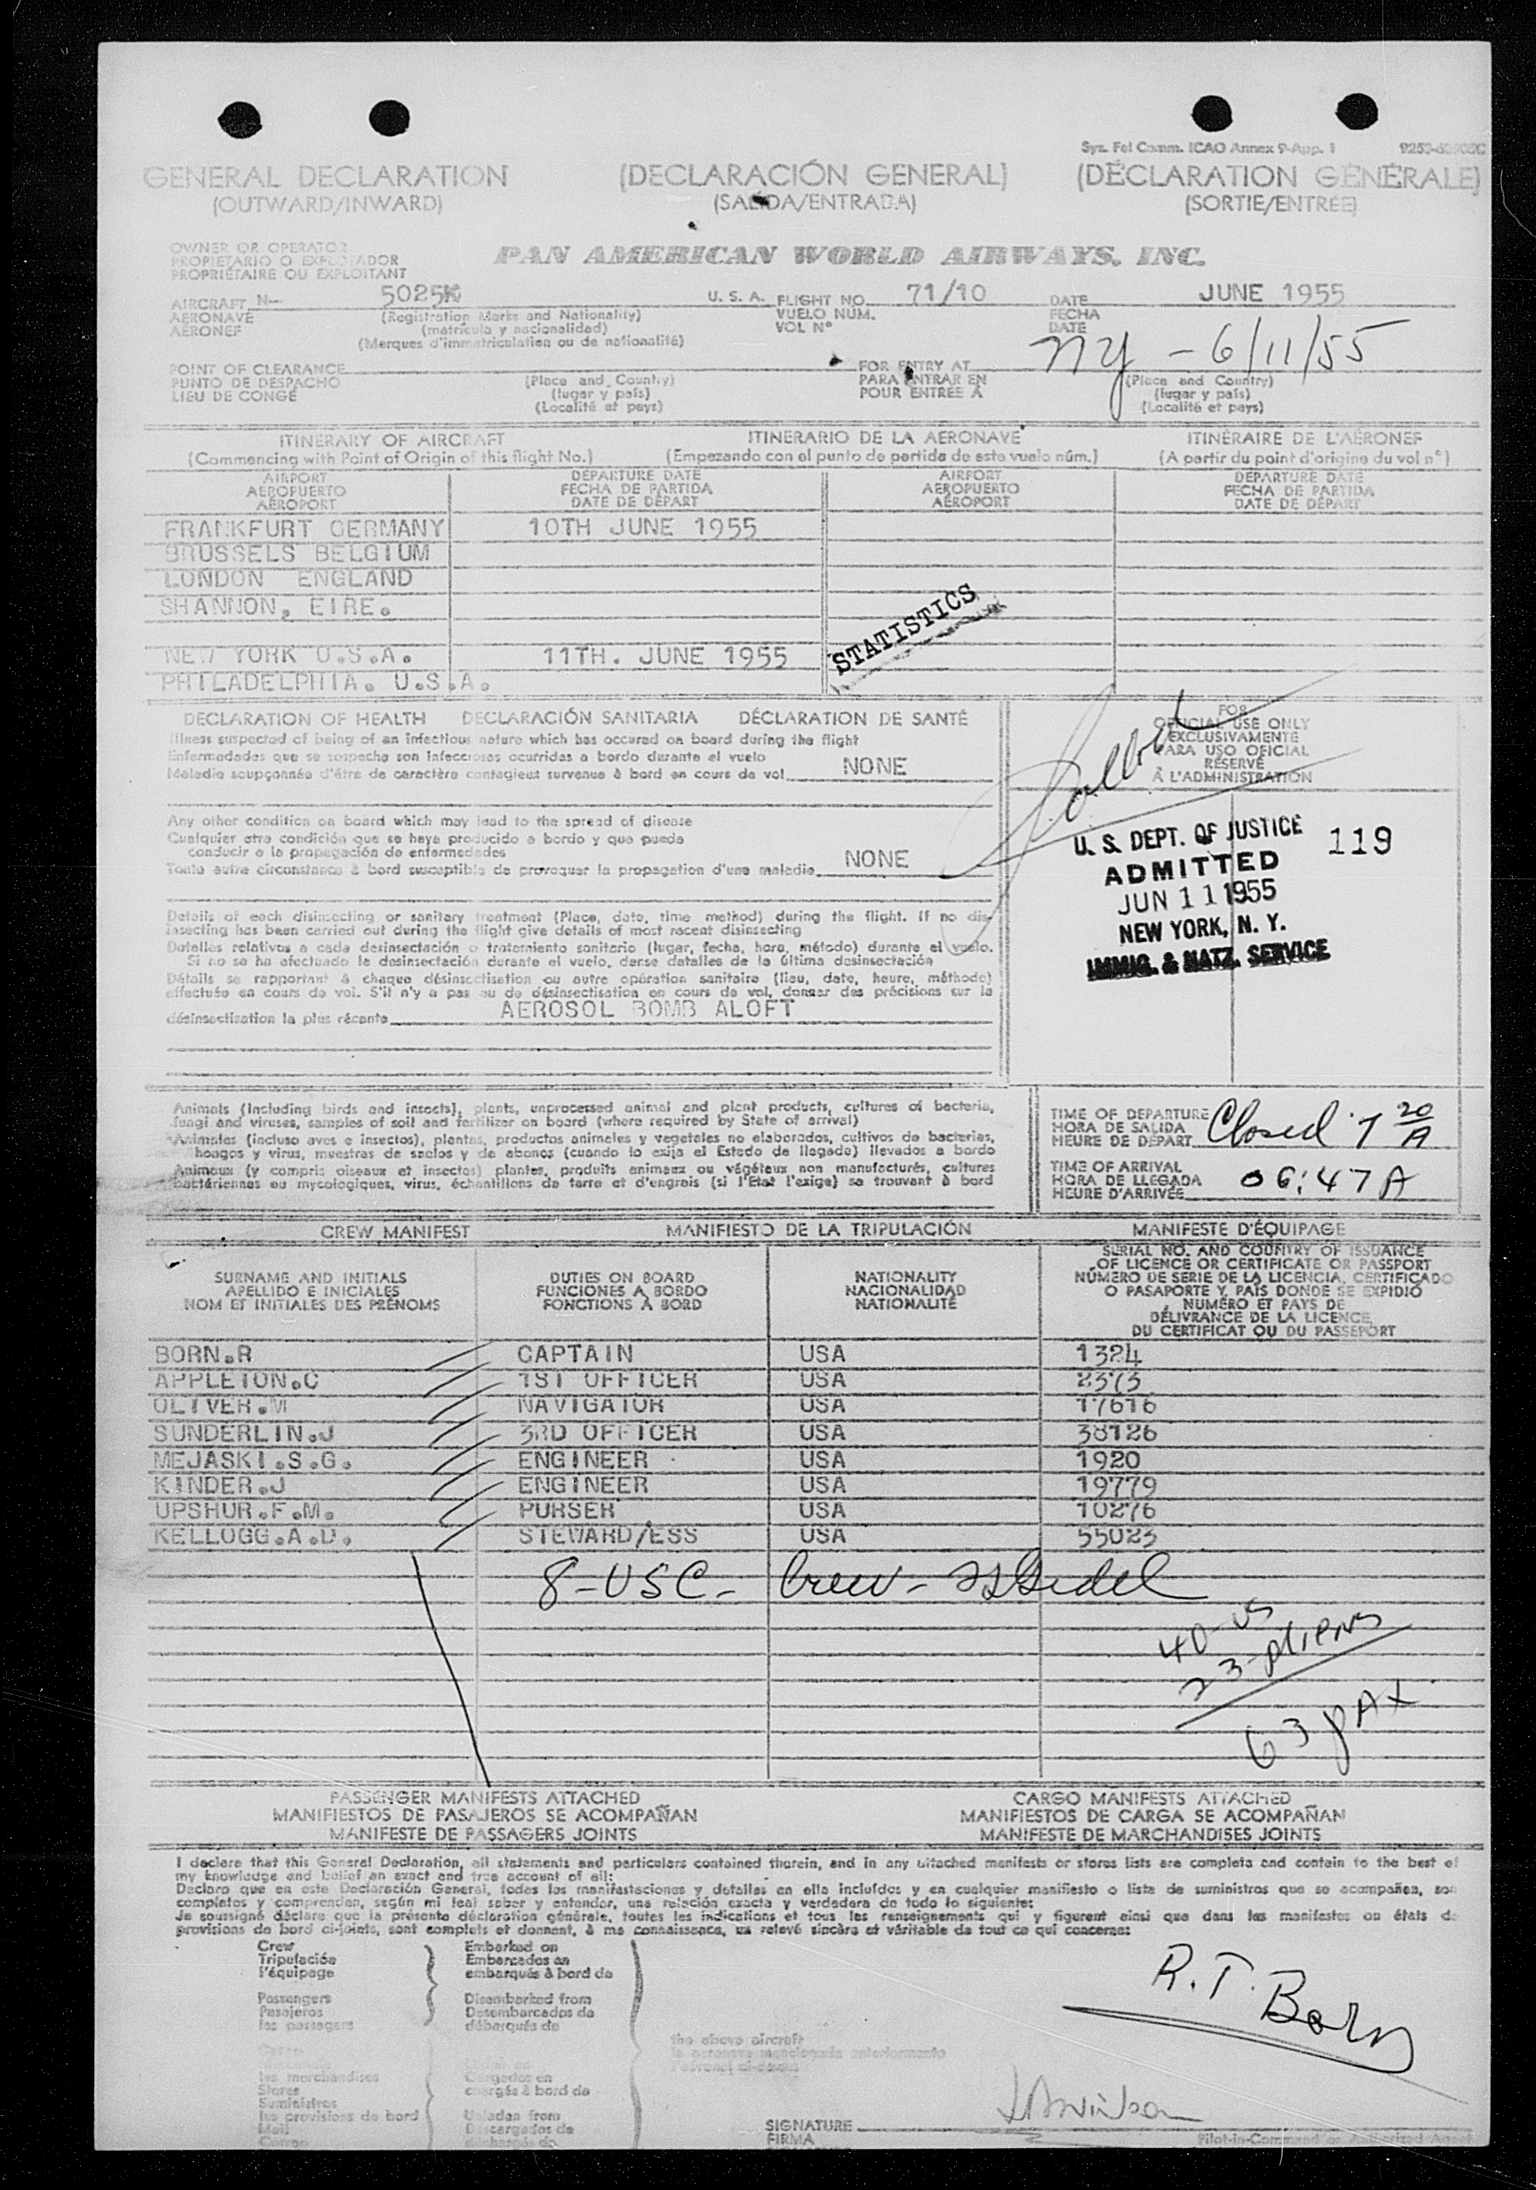 Sys. Fel Comm. ICAO Annex 9-App. 1
GENERAL DECLARATION (DECLARACIÓN GENERAL) (DÉCLARATION GÉNÉRALE)
(OUTWARD/INWARD) (SALIDA/ENTRADA) (SORTIE/ENTRÉE)
OWNER OR OPERATOR
PROPIETARIO O EXPLOTADOR
PROPRIÉTAIRE OU EXPLOITANT
PAN AMERICAN WORLD AIRWAYS, INC.
AIRCRAFT N- 5025K U. S. A. FLIGHT NO. 71/10 DATE JUNE 1955
AERONAVE (Registration Marks and Nationality) VUELO NÚM. FECHA
AÉRONEF (matrícula y nacionalidad) VOL Nº DATE
(Marques d'immatriculation ou de nationalité)
NY - 6/11/55
POINT OF CLEARANCE FOR ENTRY AT
PUNTO DE DESPACHO (Place and Country) PARA ENTRAR EN (Place and Country)
LIEU DE CONGÉ (lugar y país) POUR ENTRÉE À (lugar y país)
(Localité et pays) (Localité et pays)
ITINERARY OF AIRCRAFT ITINERARIO DE LA AERONAVE ITINÉRAIRE DE L'AÉRONEF
(Commencing with Point of Origin of this flight No.) (Empezando con el punto de partida de este vuelo núm.) (A partir du point d'origine du vol nº)
AIRPORT DEPARTURE DATE AIRPORT DEPARTURE DATE
AEROPUERTO FECHA DE PARTIDA AEROPUERTO FECHA DE PARTIDA
AÉROPORT DATE DE DÉPART AÉROPORT DATE DE DÉPART
FRANKFURT GERMANY 10TH JUNE 1955
BRUSSELS BELGIUM
LONDON ENGLAND
SHANNON, EIRE.
STATISTICS
NEW YORK U.S.A. 11TH. JUNE 1955
PHILADELPHIA. U.S.A.
DECLARATION OF HEALTH DECLARACIÓN SANITARIA DÉCLARATION DE SANTÉ
Illness suspected of being of an infectious nature which has occured on board during the flight
Enfermedades que se sospecha son infecciosas ocurridas a bordo durante el vuelo
Maladie soupçonnée d'être de caractère contagieux survenue à bord en cours de vol NONE
FOR
OFFICIAL USE ONLY
EXCLUSIVAMENTE
PARA USO OFICIAL
RÉSERVÉ
À L'ADMINISTRATION
Any other condition on board which may lead to the spread of disease
Cualquier otra condición que se haya producido a bordo y que pueda
conducir a la propagación de enfermedades
Toute autre circonstance à bord susceptible de provoquer la propagation d'une maladie NONE
U. S. DEPT. OF JUSTICE 119
ADMITTED
JUN 11 1955
NEW YORK, N. Y.
IMMIG. & NATZ. SERVICE
Details of each disinsecting or sanitary treatment (Place, date, time method) during the flight. If no dis-
insecting has been carried out during the flight give details of most recent disinsecting
Detalles relativos a cada desinsectación o tratamiento sanitario (lugar, fecha, hora, método) durante el vuelo.
Si no se ha efectuado la desinsectación durante el vuelo, darse detalles de la última desinsectación
Détails se rapportant à chaque désinsectisation ou autre opération sanitaire (lieu, date, heure, méthode)
effectuée en cours de vol. S'il n'y a pas eu de désinsectisation en cours de vol, donner des précisions sur la
désinsectisation la plus récente AEROSOL BOMB ALOFT
Animals (Including birds and insects), plants, unprocessed animal and plant products, cultures of bacteria,
fungi and viruses, samples of soil and fertilizer on board (where required by State of arrival)
Animales (incluso aves e insectos), plantas, productos animales y vegetales no elaborados, cultivos de bacterias,
hongos y virus, muestras de suelos y de abonos (cuando lo exija el Estado de llegada) llevados a bordo
Animaux (y compris oiseaux et insectes) plantes, produits animaux ou végétaux non manufacturés, cultures
bactériennes ou mycologiques, virus, échantillons de terre et d'engrais (si l'Etat l'exige) se trouvant à bord
TIME OF DEPARTURE
HORA DE SALIDA
HEURE DE DÉPART Closed 7 20 A
TIME OF ARRIVAL
HORA DE LLEGADA
HEURE D'ARRIVÉE 06:47 A
CREW MANIFEST MANIFIESTO DE LA TRIPULACIÓN MANIFESTE D'ÉQUIPAGE
SURNAME AND INITIALS DUTIES ON BOARD NATIONALITY
APELLIDO E INICIALES FUNCIONES A BORDO NACIONALIDAD
NOM ET INITIALES DES PRÉNOMS FONCTIONS À BORD NATIONALITÉ
SERIAL NO. AND COUNTRY OF ISSUANCE
OF LICENCE OR CERTIFICATE OR PASSPORT
NÚMERO DE SERIE DE LA LICENCIA, CERTIFICADO
O PASAPORTE Y PAÍS DONDE SE EXPIDIÓ
NUMÉRO ET PAYS DE
DÉLIVRANCE DE LA LICENCE,
DU CERTIFICAT OU DU PASSEPORT
BORN.R CAPTAIN USA 1324
APPLETON.C 1ST OFFICER USA 2373
OLIVER.M NAVIGATOR USA 17616
SUNDERLIN.J 3RD OFFICER USA 38126
MEJASKI.S.G. ENGINEER USA 1920
KINDER.J ENGINEER USA 19779
UPSHUR.F.M. PURSER USA 10276
KELLOGG.A.D. STEWARD/ESS USA 55023
8-USC- Crew-
40-US
23-Aliens
63 PAX
PASSENGER MANIFESTS ATTACHED CARGO MANIFESTS ATTACHED
MANIFIESTOS DE PASAJEROS SE ACOMPAÑAN MANIFIESTOS DE CARGA SE ACOMPAÑAN
MANIFESTE DE PASSAGERS JOINTS MANIFESTE DE MARCHANDISES JOINTS
I declare that this General Declaration, all statements and particulars contained therein, and in any attached manifests or stores lists are complete and contain to the best of
my knowledge and belief an exact and true account of all:
Declaro que en esta Declaración General, todas las manifestaciones y detalles en ella incluídos y en cualquier manifiesto o lista de suministros que se acompañan, son
completos y comprenden, según mi leal saber y entender, una relación exacta y verdadera de todo lo siguiente:
Je soussigné déclare que la présente déclaration générale, toutes les indications et tous les renseignements qui y figurent ainsi que dans les manifestes ou états de
provisions de bord ci-joints, sont complets et donnent, à ma connaissance, un relevé sincère et véritable de tout ce qui concerne:
Crew Embarked on
Tripulación Embarcados en
l'équipage embarqués à bord de
Passengers Disembarked from
Pasajeros Desembarcados de
les passagers débarqués de
R. T. Born
the above aircraft
la aeronave mencionada anteriormente
l'aéronef ci-dessus
les marchandises Cargados en
Stores chargés à bord de
Suministros
les provisions de bord Unladen from
Mail Descargados de
Correo déchargés de
SIGNATURE
FIRMA Pilot-in-Command or Authorized Agent